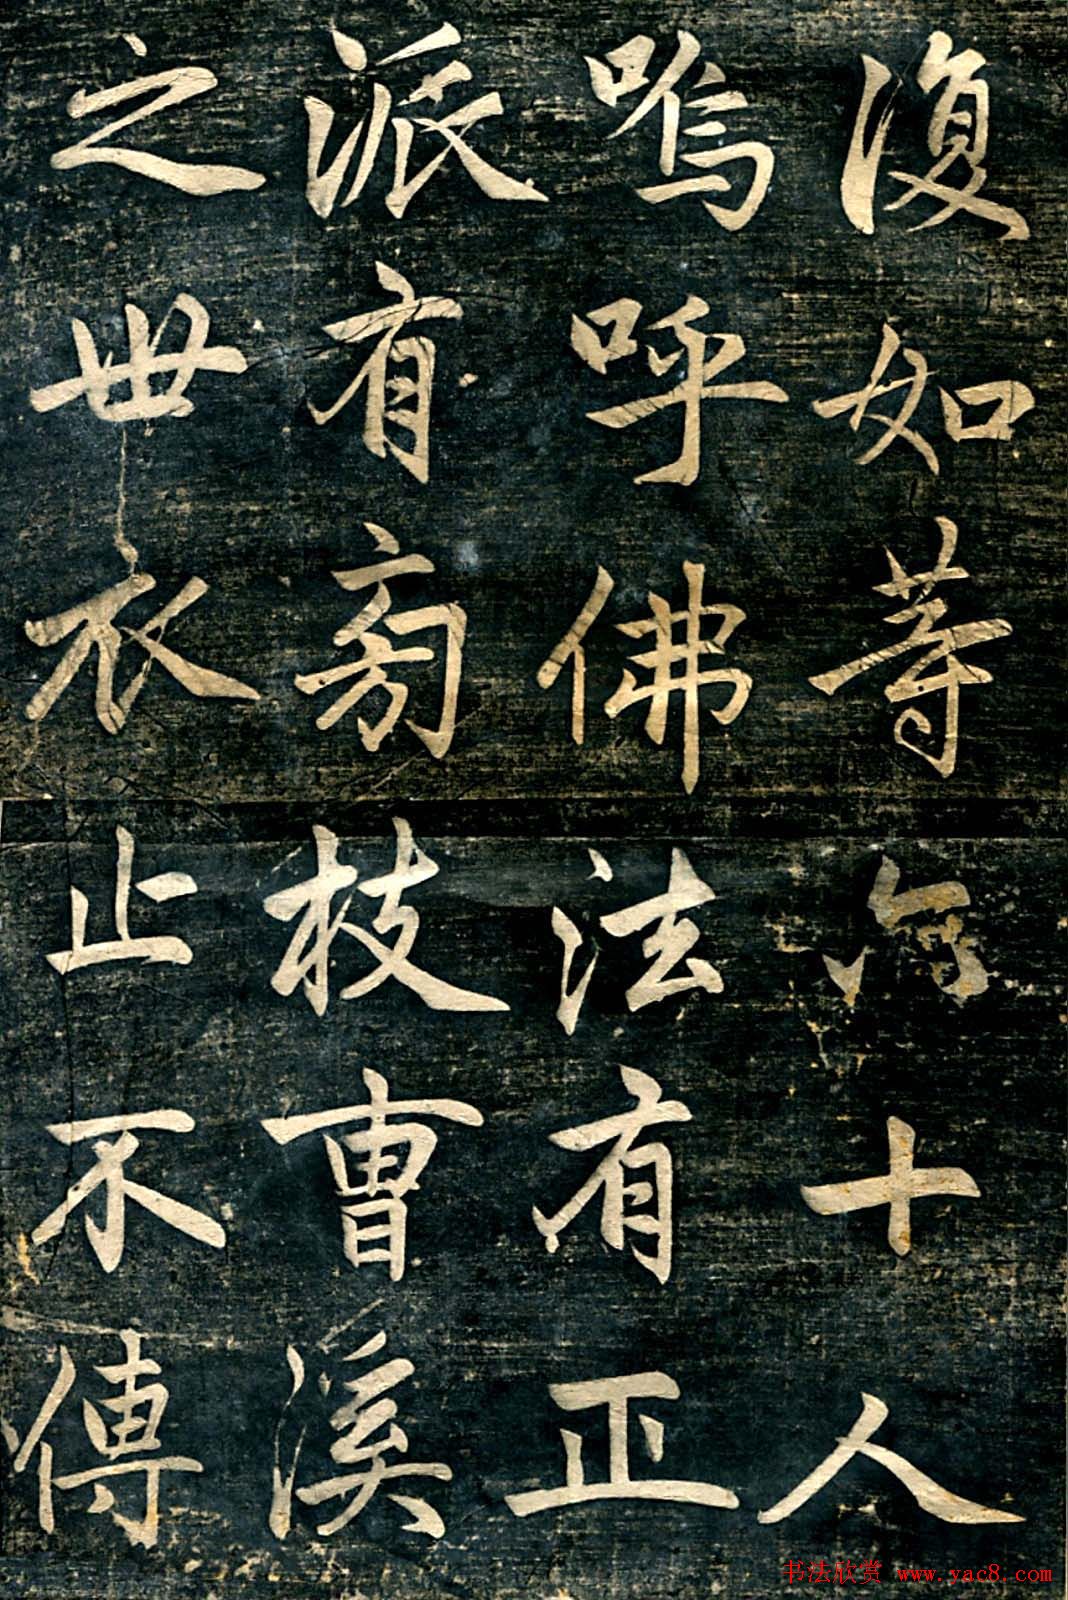 復如等十人
嗚呼佛法有正
派有旁枝曹溪
之世衣止不傳
书法欣赏 www.yac8.com